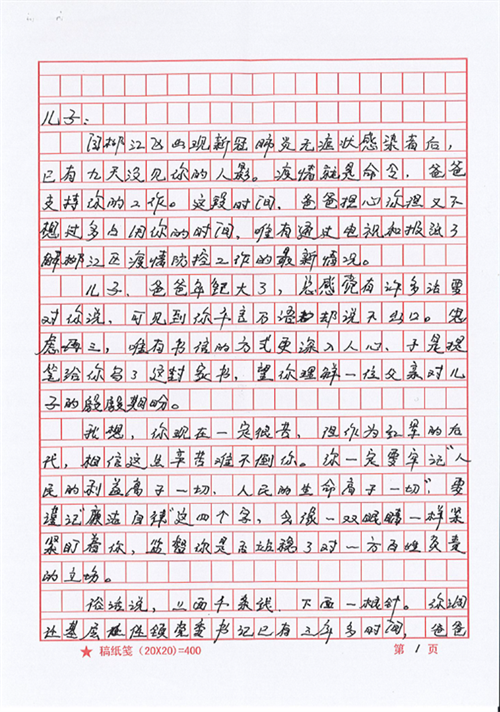 儿子：
自郫江区出现新冠肺炎无症状感染者后，
已有九天没见你的人影。疫情就是命令，爸爸
支持你的工作。这段时间，爸爸担心你但又不
想过多占用你的时间，唯有通过电视和报纸了
解郫江区疫情防控工作的最新情况。
儿子，爸爸年纪大了，总感觉有许多话要
对你说，可见到你千言万语却说不出口。思
虑再三，唯有书信的方式更深入人心，于是提
笔给你写了这封家书，望你理解一位父亲对儿
子的殷殷期盼。
我想，你现在一定很苦，但作为红军的后
代，相信这些辛苦难不倒你。你一定要牢记“人
民的利益高于一切、人民的生命高于一切”，要
谨记“廉洁自律”这四个字，会像一双眼睛一样紧
紧盯着你，监督你是否站稳了对一方百姓负责
的立场。
俗话说，上面千条线，下面一根针。你到
社基层担任镇党委书记已有三年多时间，爸爸
★ 稿纸笺（20X20)=400 第 1 页